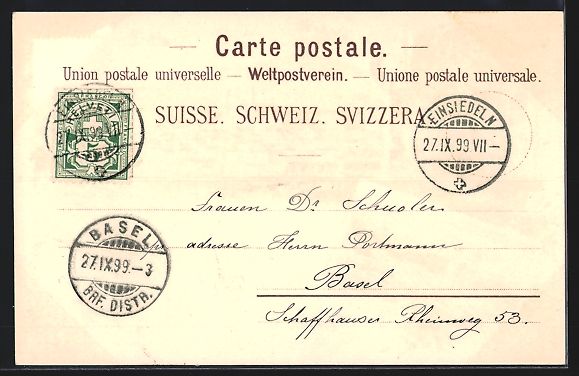 Carte postale.
Union postale universelle — Weltpostverein. — Unione postale universale.
SUISSE. SCHWEIZ. SVIZZERA.
HELVETIA
EINSIEDELN
27.IX.99 VII–
Frauen Dr Schuoler
adresse Herrn Portmann
Basel
Schaffhauser Rheinweg 53.
BASEL
27.IX.99.–3
BRF. DISTR.